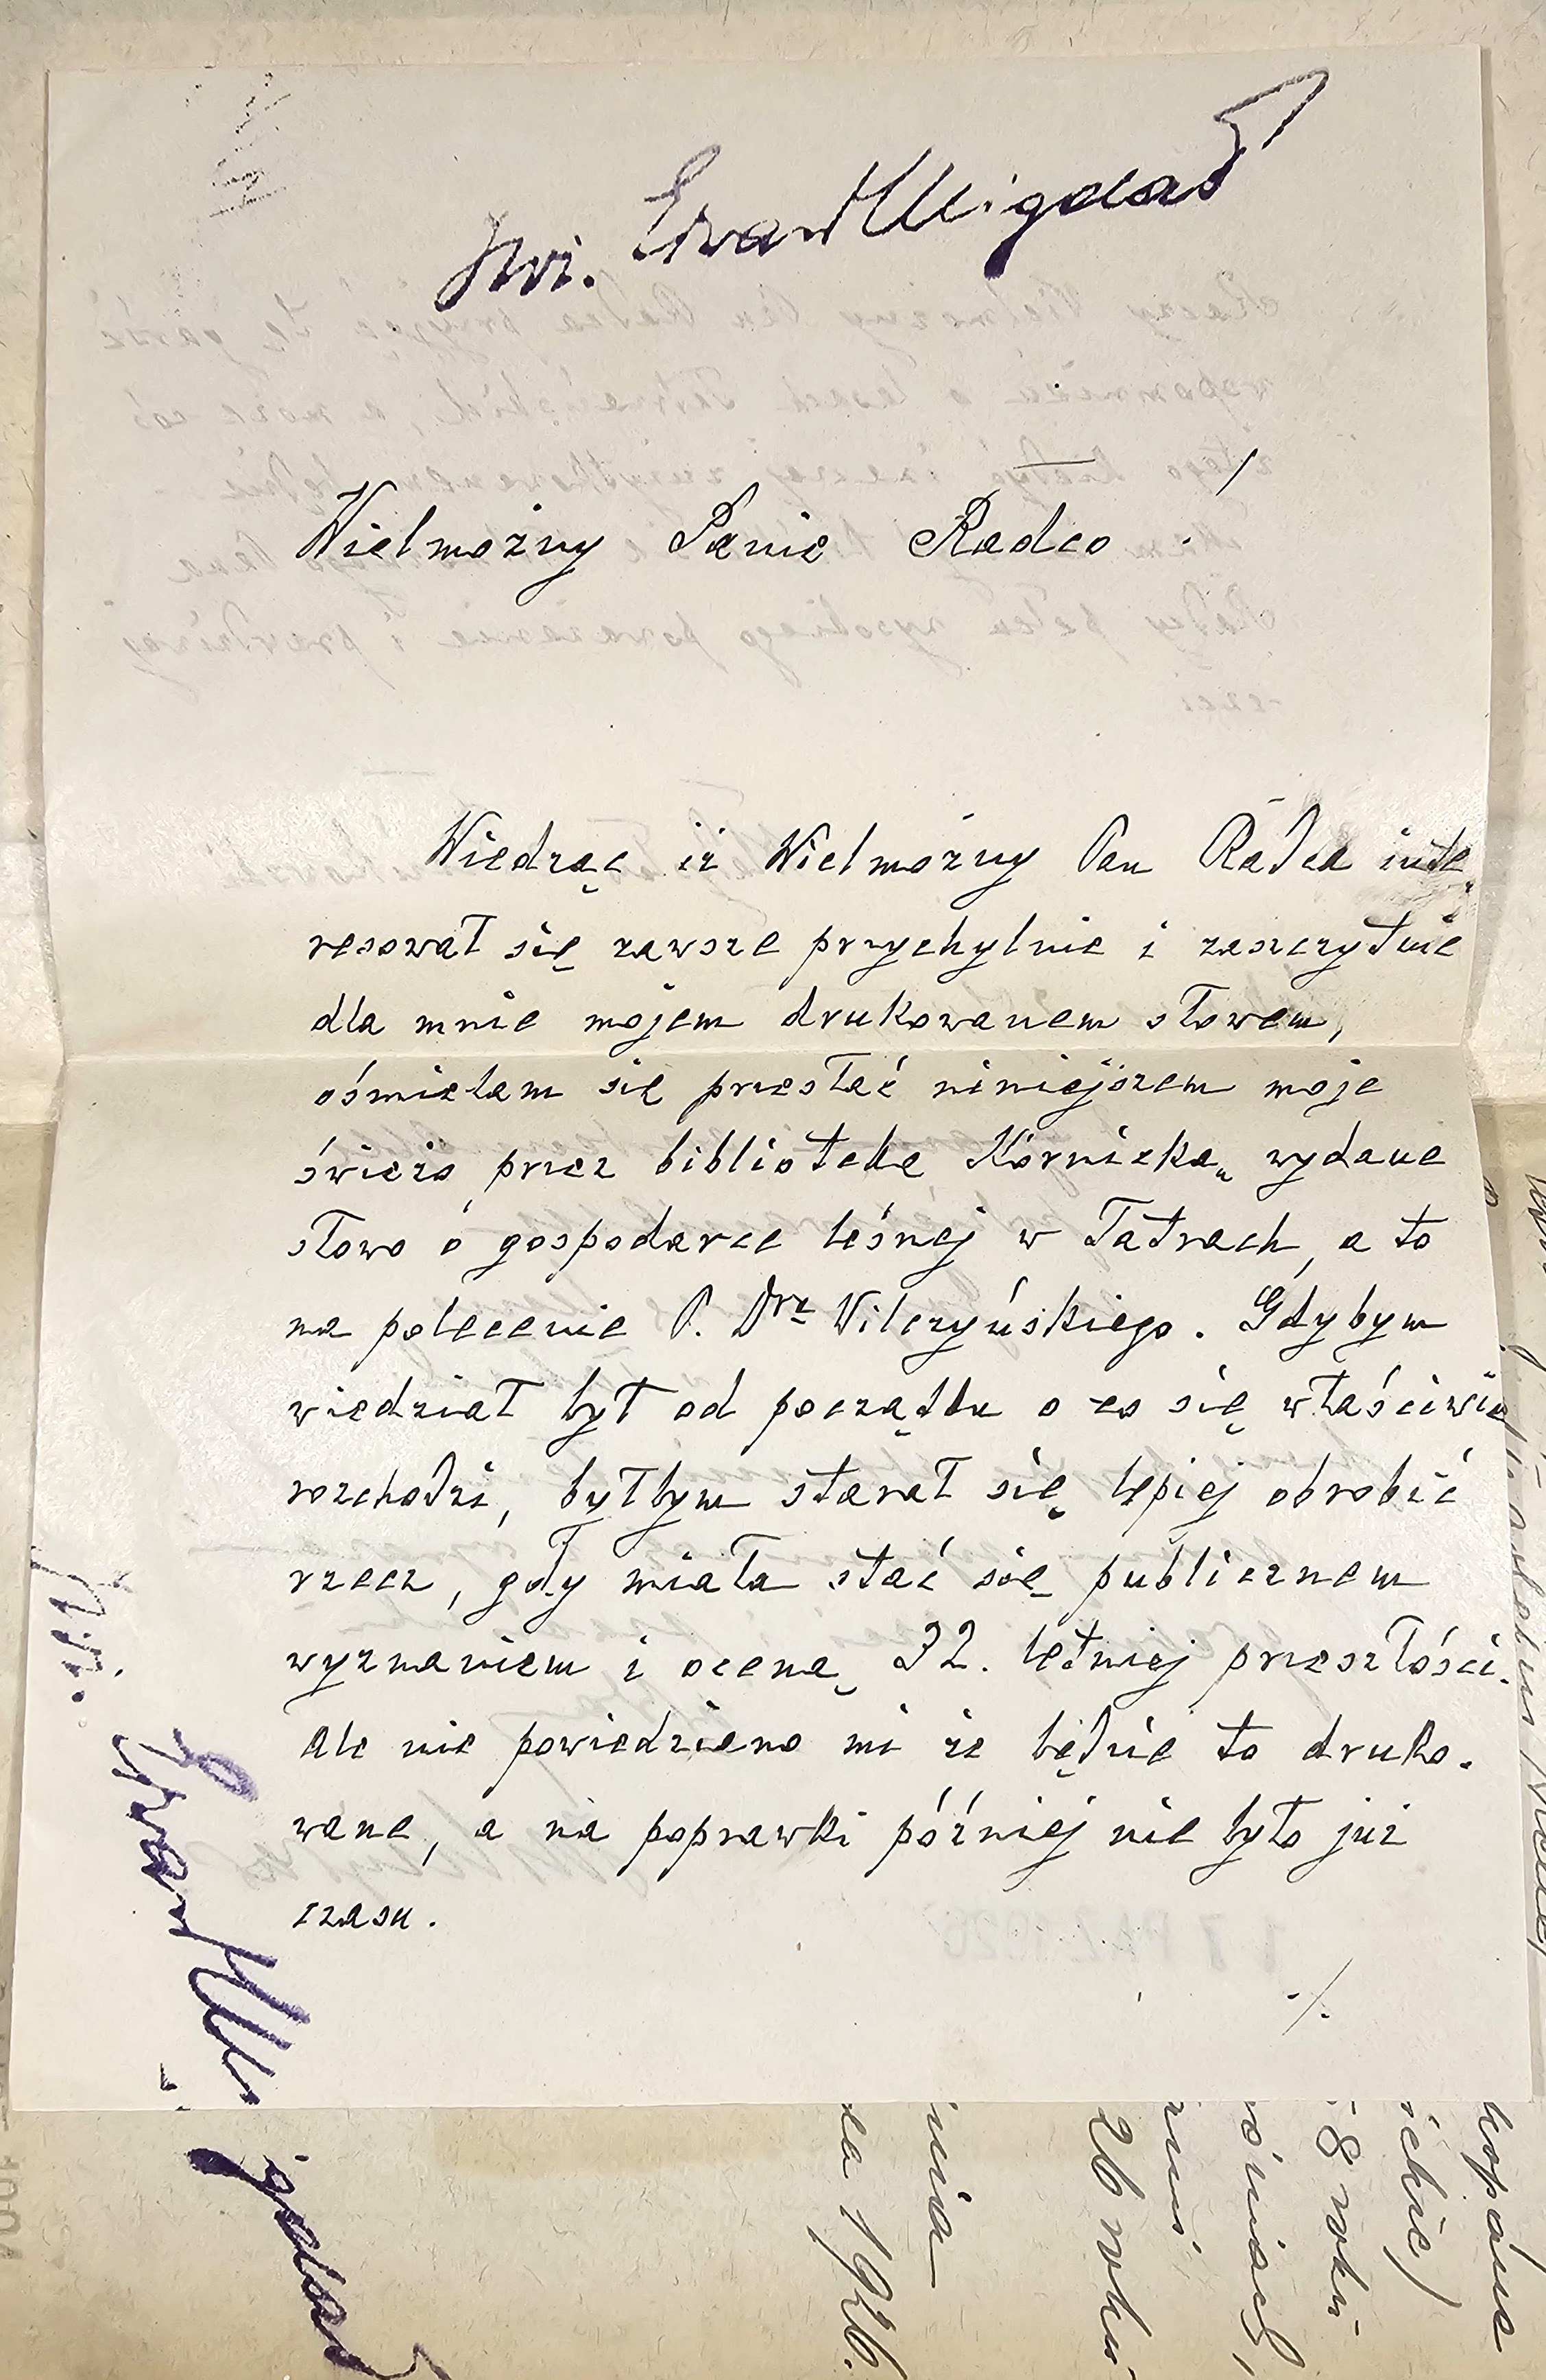 Inż. Ewa Migdał
Wielmożny Panie Radco!
Wiedząc iż Wielmożny Pan Radca inte-
resował się zawsze przychylnie i zaszczytnie
dla mnie mojem drukowanem słowem,
ośmielam się przesłać niniejszem moje
świeżo przez bibliotekę Kórnicką wydane
słowo o gospodarce leśnej w Tatrach, a to
na polecenie P. Dra Wilczyńskiego. Gdybym
wiedział był od początku o co się właściwie
rozchodzi, byłbym starał się lepiej obrobić
rzecz, gdy miała stać się publicznem
wyznaniem i oceną 32. letniej przeszłości.
Ale nie powiedziano mi że będzie to druko-
wane, a na poprawki później nie było już
czasu.
./.